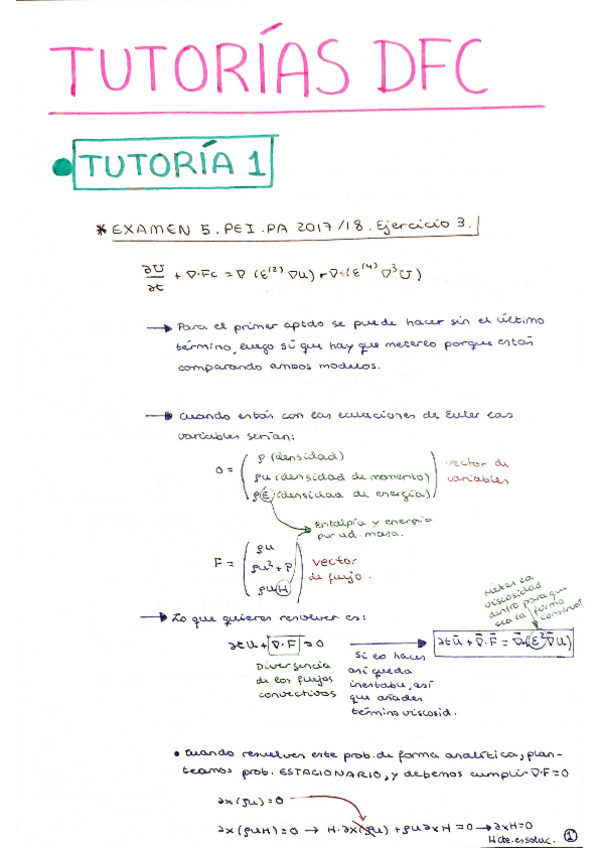 TUTORÍAS DFC
• TUTORÍA 1
* EXAMEN 5. PEI. PA 2017/18. Ejercicio 3.
∂U/∂t + ∇·Fc = ∇·(ε⁽²⁾ ∇u) - ∇·(ε⁽⁴⁾ ∇³U)
→ Para el primer aptdo se puede hacer sin el último
término, luego sí que hay que meterlo porque están
comparando ambos modelos.
→ Cuando estás con las ecuaciones de Euler las
variables serían:
U = ( ρ (densidad)
ρu (densidad de momento)
ρE (densidad de energía) )
vector de
variables
Entalpía y energía
por ud. masa.
F = ( ρu
ρu² + P
ρuH )
vector
de flujo.
→ Lo que quieres resolver es:
∂tU + ∇·F = 0
Divergencia
de los flujos
convectivos
Si lo haces
así queda
inestable, así
que añades
término viscosid.
∂tū + ∇̄·F̄ = ∇̄·(ε²∇̄u)
Meter la
viscosidad
dentro para que
sea la forma
• Cuando resuelves este prob. de forma analítica, plan-
teamos prob. ESTACIONARIO, y debemos cumplir ∇·F = 0
∂x(ρu) = 0
∂x(ρuH) = 0 → H·∂x(ρu) + ρu∂xH = 0 → ∂xH = 0
H cte. es soluc.
1